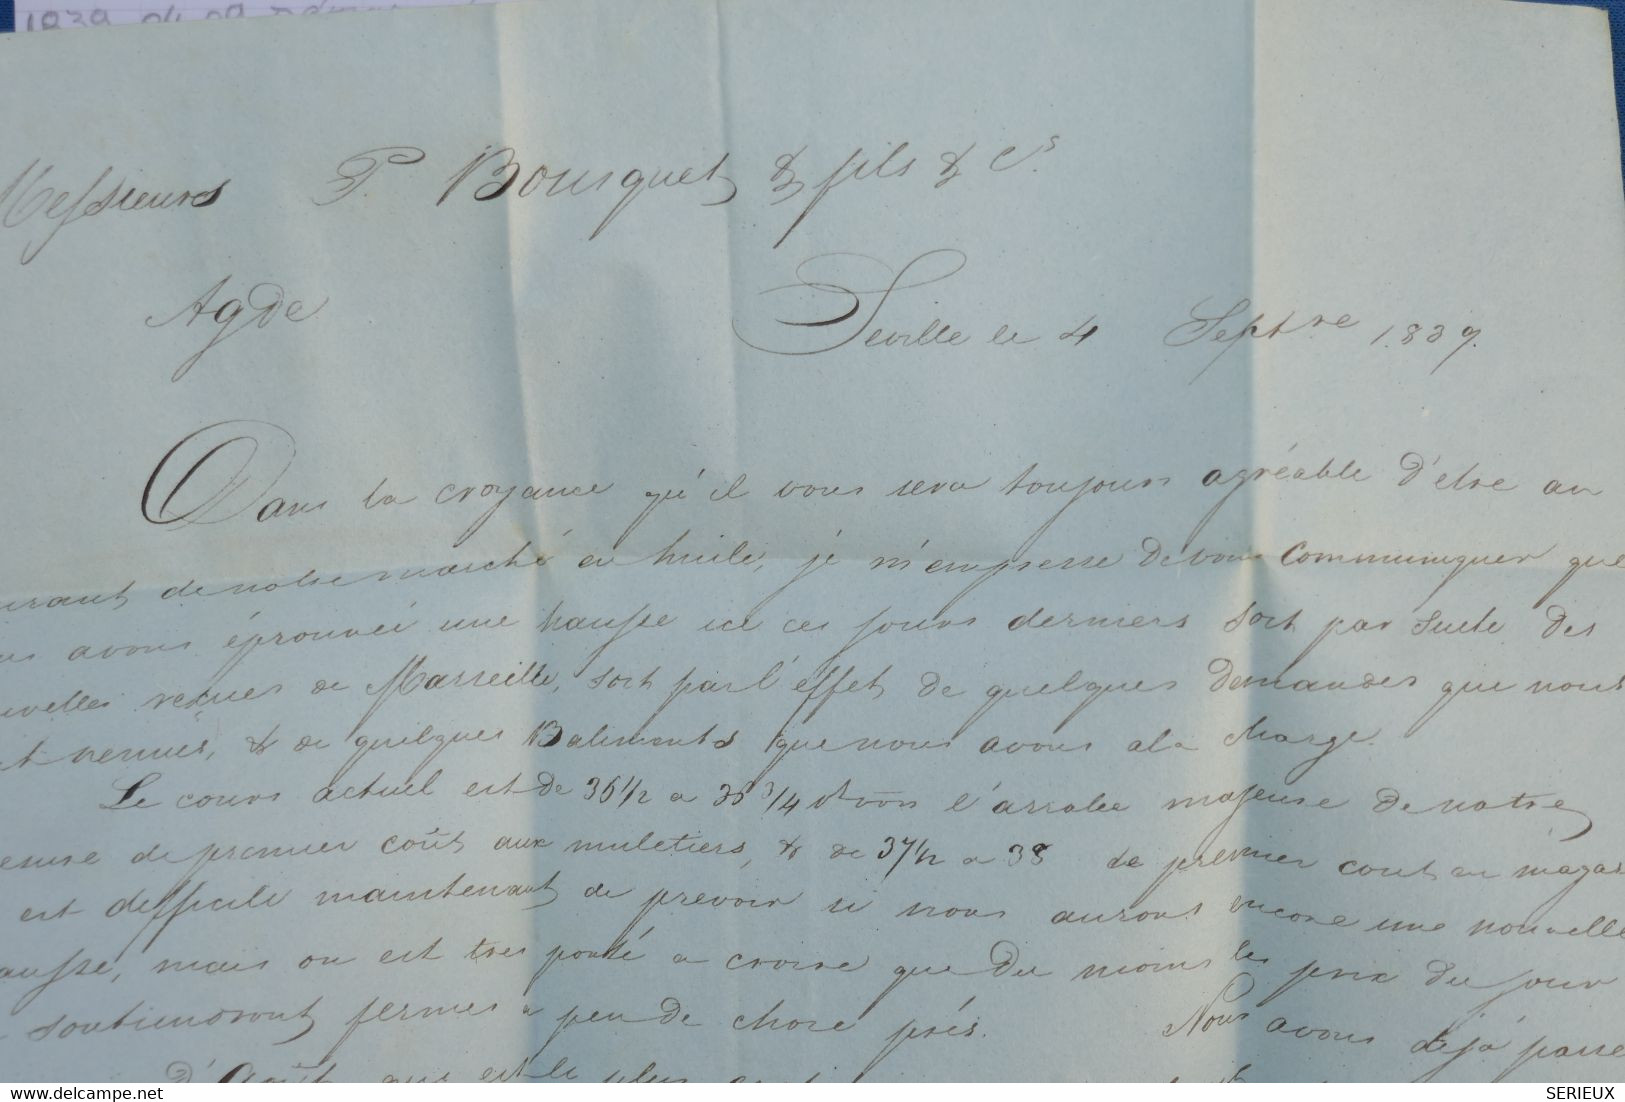 Messieurs P Bousquet & fils & Cs.
Agde Seville le 4 Septre 1839.
Dans la croyance qu'il vous sera toujours agréable d'etre au
urant de notre marché en huile, je m'empresse de vous communiquer que
us avons éprouvée une hausse ici ces jours derniers soit par suite des
uvelles reçues de Marseille, soit par l'effet de quelques demandes que nous
t venues, & de quelques Batiments que nous avons a la charge.
Le cours actuel est de 36 1/2 a 36 3/4 l'arrobe majeure de notre
esure de premier coût aux muletiers, & de 37 1/2 a 38 de premier cout en magas
est difficile maintenant de prévoir si nous aurons encore une nouvelle
ausse, mais on est tres porté a croire que du moins les prix du jour
soutiendront fermes a peu de chose prés. Nous avons déjà passé
d'Août que est le plus
SERIEUX
delcampe.net